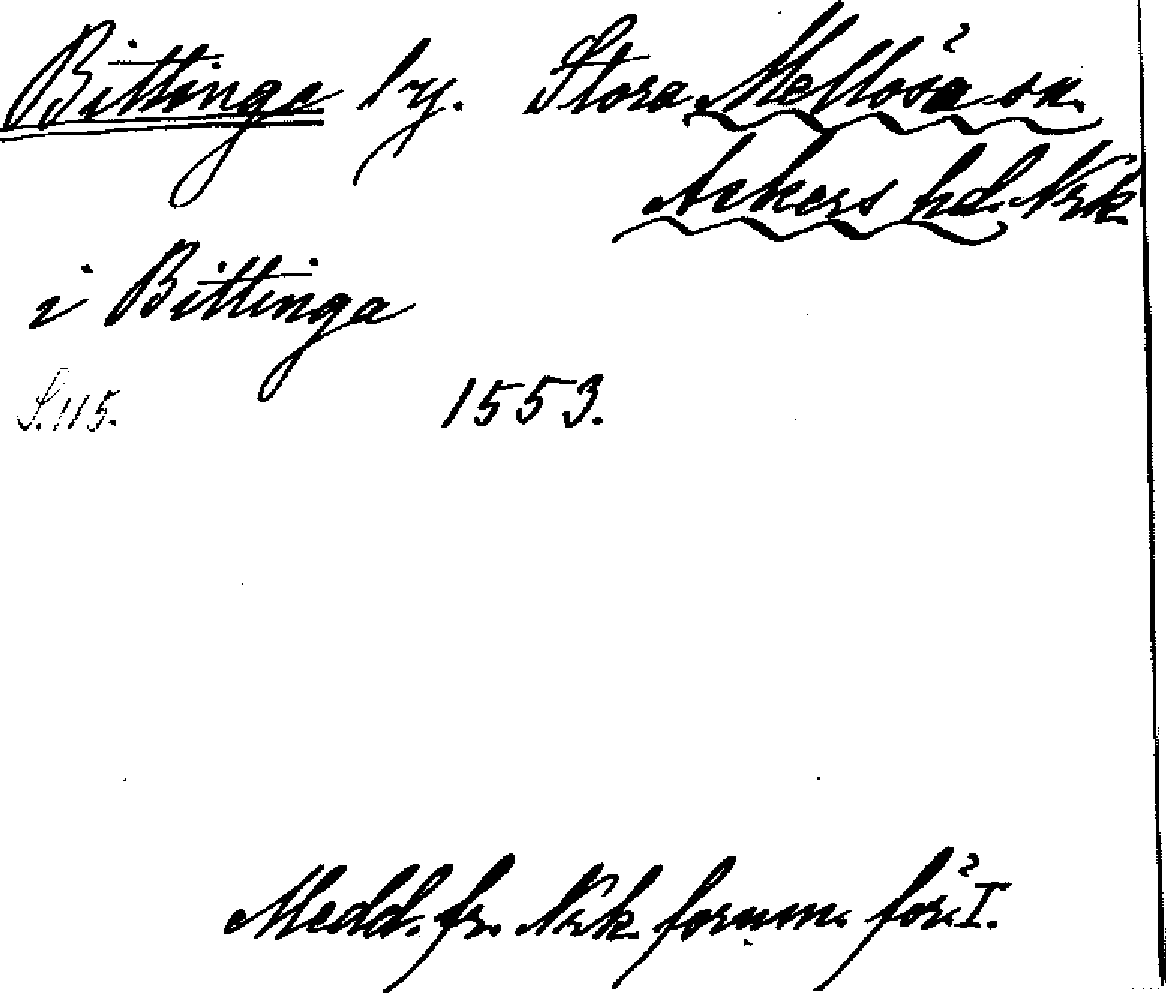 Bittinga by. Stora Mellösa sn.
Askers hd. Nrk
i Bittinga
S. 115. 1553.
Medd. fr. Nrk. fornm. för. I.